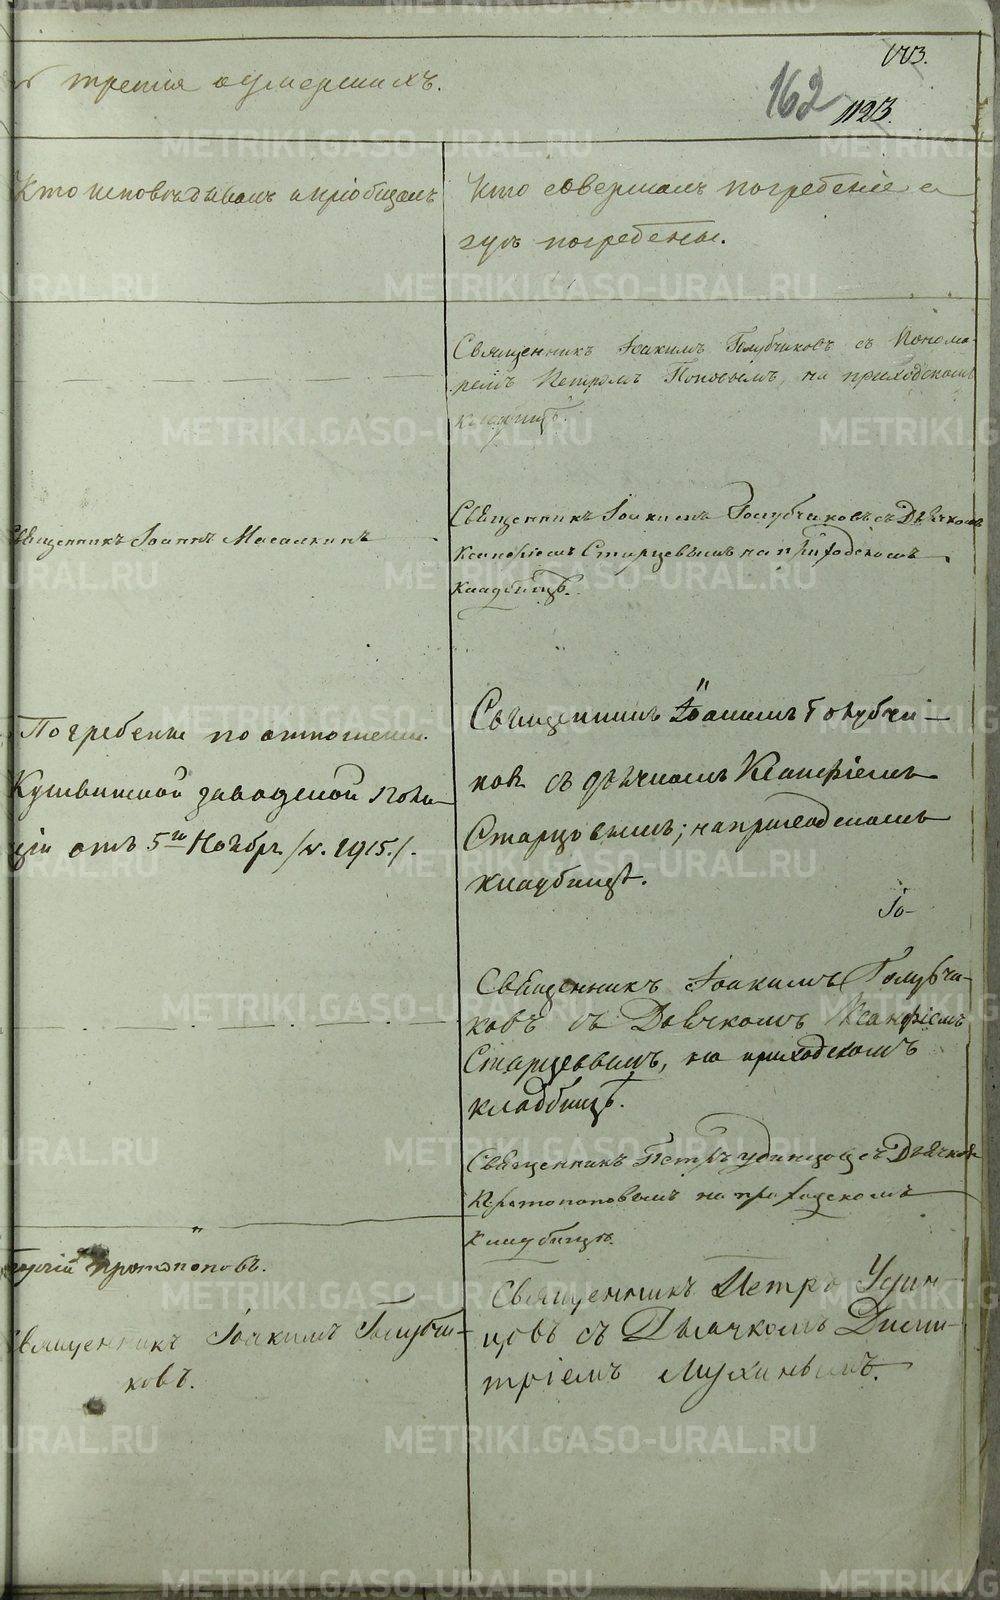 третія о умершихъ.
1123.
162
Кто исповѣдывалъ и пріобщалъ
Кто совершалъ погребеніе и
гдѣ погребены.
Священникъ Іоакимъ Голубчиковъ съ Понома-
ремъ Петромъ Поповымъ, на приходскомъ
кладбищѣ.
Священникъ Іоаннъ Масалкинъ
Священникъ Іоакимъ Голубчиковъ съ Дьячкомъ
Ксанфіемъ Старцевымъ на приходскомъ
кладбищѣ.
Погребенъ по отношенію
Кушвинской заводской поли-
ціи отъ 5го Ноября /№ 2915./.
Священникъ Іоакимъ Голубчи-
ковъ съ дьячкомъ Ксанфіемъ
Старцовымъ; на приходскомъ
кладбищѣ.
Іо-
Священникъ Іоакимъ Голубчи-
ковъ съ Дьячкомъ Ксанфіемъ
Старцевымъ, на приходскомъ
кладбищѣ.
Священникъ Петръ Удинцовъ съ Дьячкомъ
Протопоповымъ на приходскомъ
кладбищѣ.
Протопоповъ.
Священникъ Іоакимъ Голубчи-
ковъ.
Священникъ Петръ Удин-
цовъ съ Дьячкомъ Дими-
тріемъ Мухинымъ.
METRIKI.GASO-URAL.RU